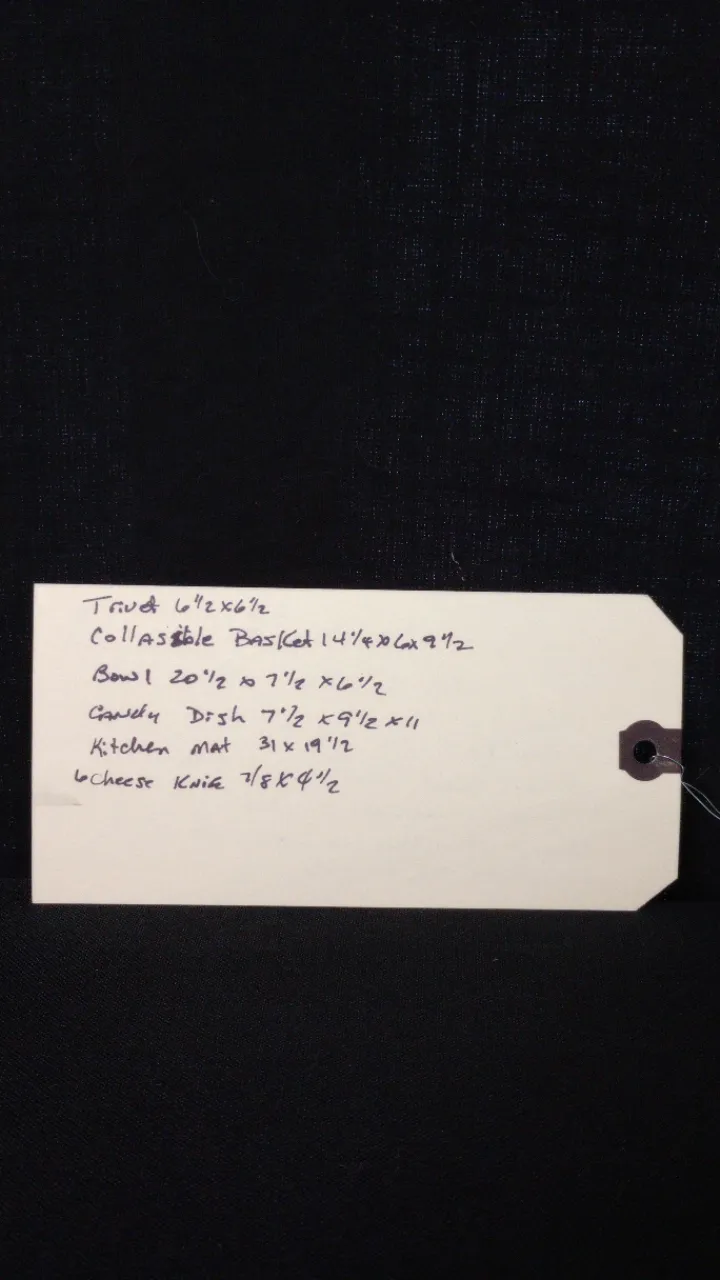 Trivet 6 1/2 x 6 1/2
Collassible Basket 14 1/4 x 6 x 9 1/2
Bowl 20 1/2 x 7 1/2 x 6 1/2
Candy Dish 7 1/2 x 9 1/2 x 11
Kitchen mat 31 x 19 1/2
6 Cheese Knife 7/8 x 4 1/2